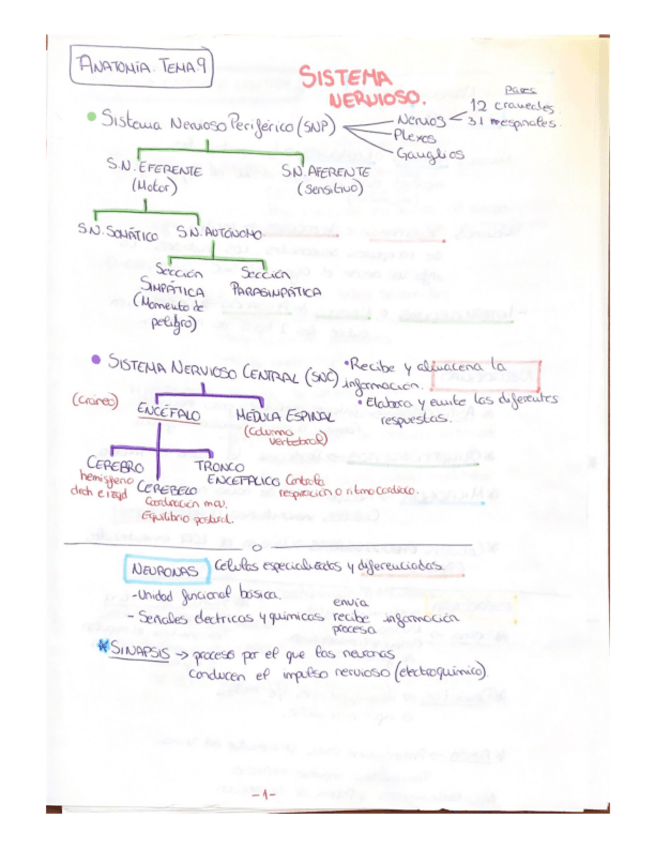 ANATOMÍA. TEMA 9
SISTEMA
NERVIOSO.
Pares
• Sistema Nervioso Periférico (SNP)
Nervios
12 craneales.
31 raquídeos.
Plexos
Ganglios
S.N. EFERENTE
(Motor)
S.N. AFERENTE
(Sensitivo)
S.N. SOMÁTICO
S.N. AUTÓNOMO
Sección
SIMPÁTICA
(Momento de
peligro)
Sección
PARASIMPÁTICA
• SISTEMA NERVIOSO CENTRAL (SNC)
• Recibe y almacena la
información.
• Elabora y emite las diferentes
respuestas.
(Cráneo)
ENCÉFALO
MÉDULA ESPINAL
(Columna
vertebral)
CEREBRO
hemisferio
dech e izqd
CEREBELO
Coordinación mov.
Equilibrio postural.
TRONCO
ENCEFÁLICO Controla
respiración o ritmo cardíaco.
NEURONAS Células especializadas y diferenciadas.
- Unidad funcional básica.
- Señales eléctricas y químicas
envía
recibe información
procesa
* SINAPSIS → proceso por el que las neuronas
conducen el impulso nervioso (electroquímico)
-1-